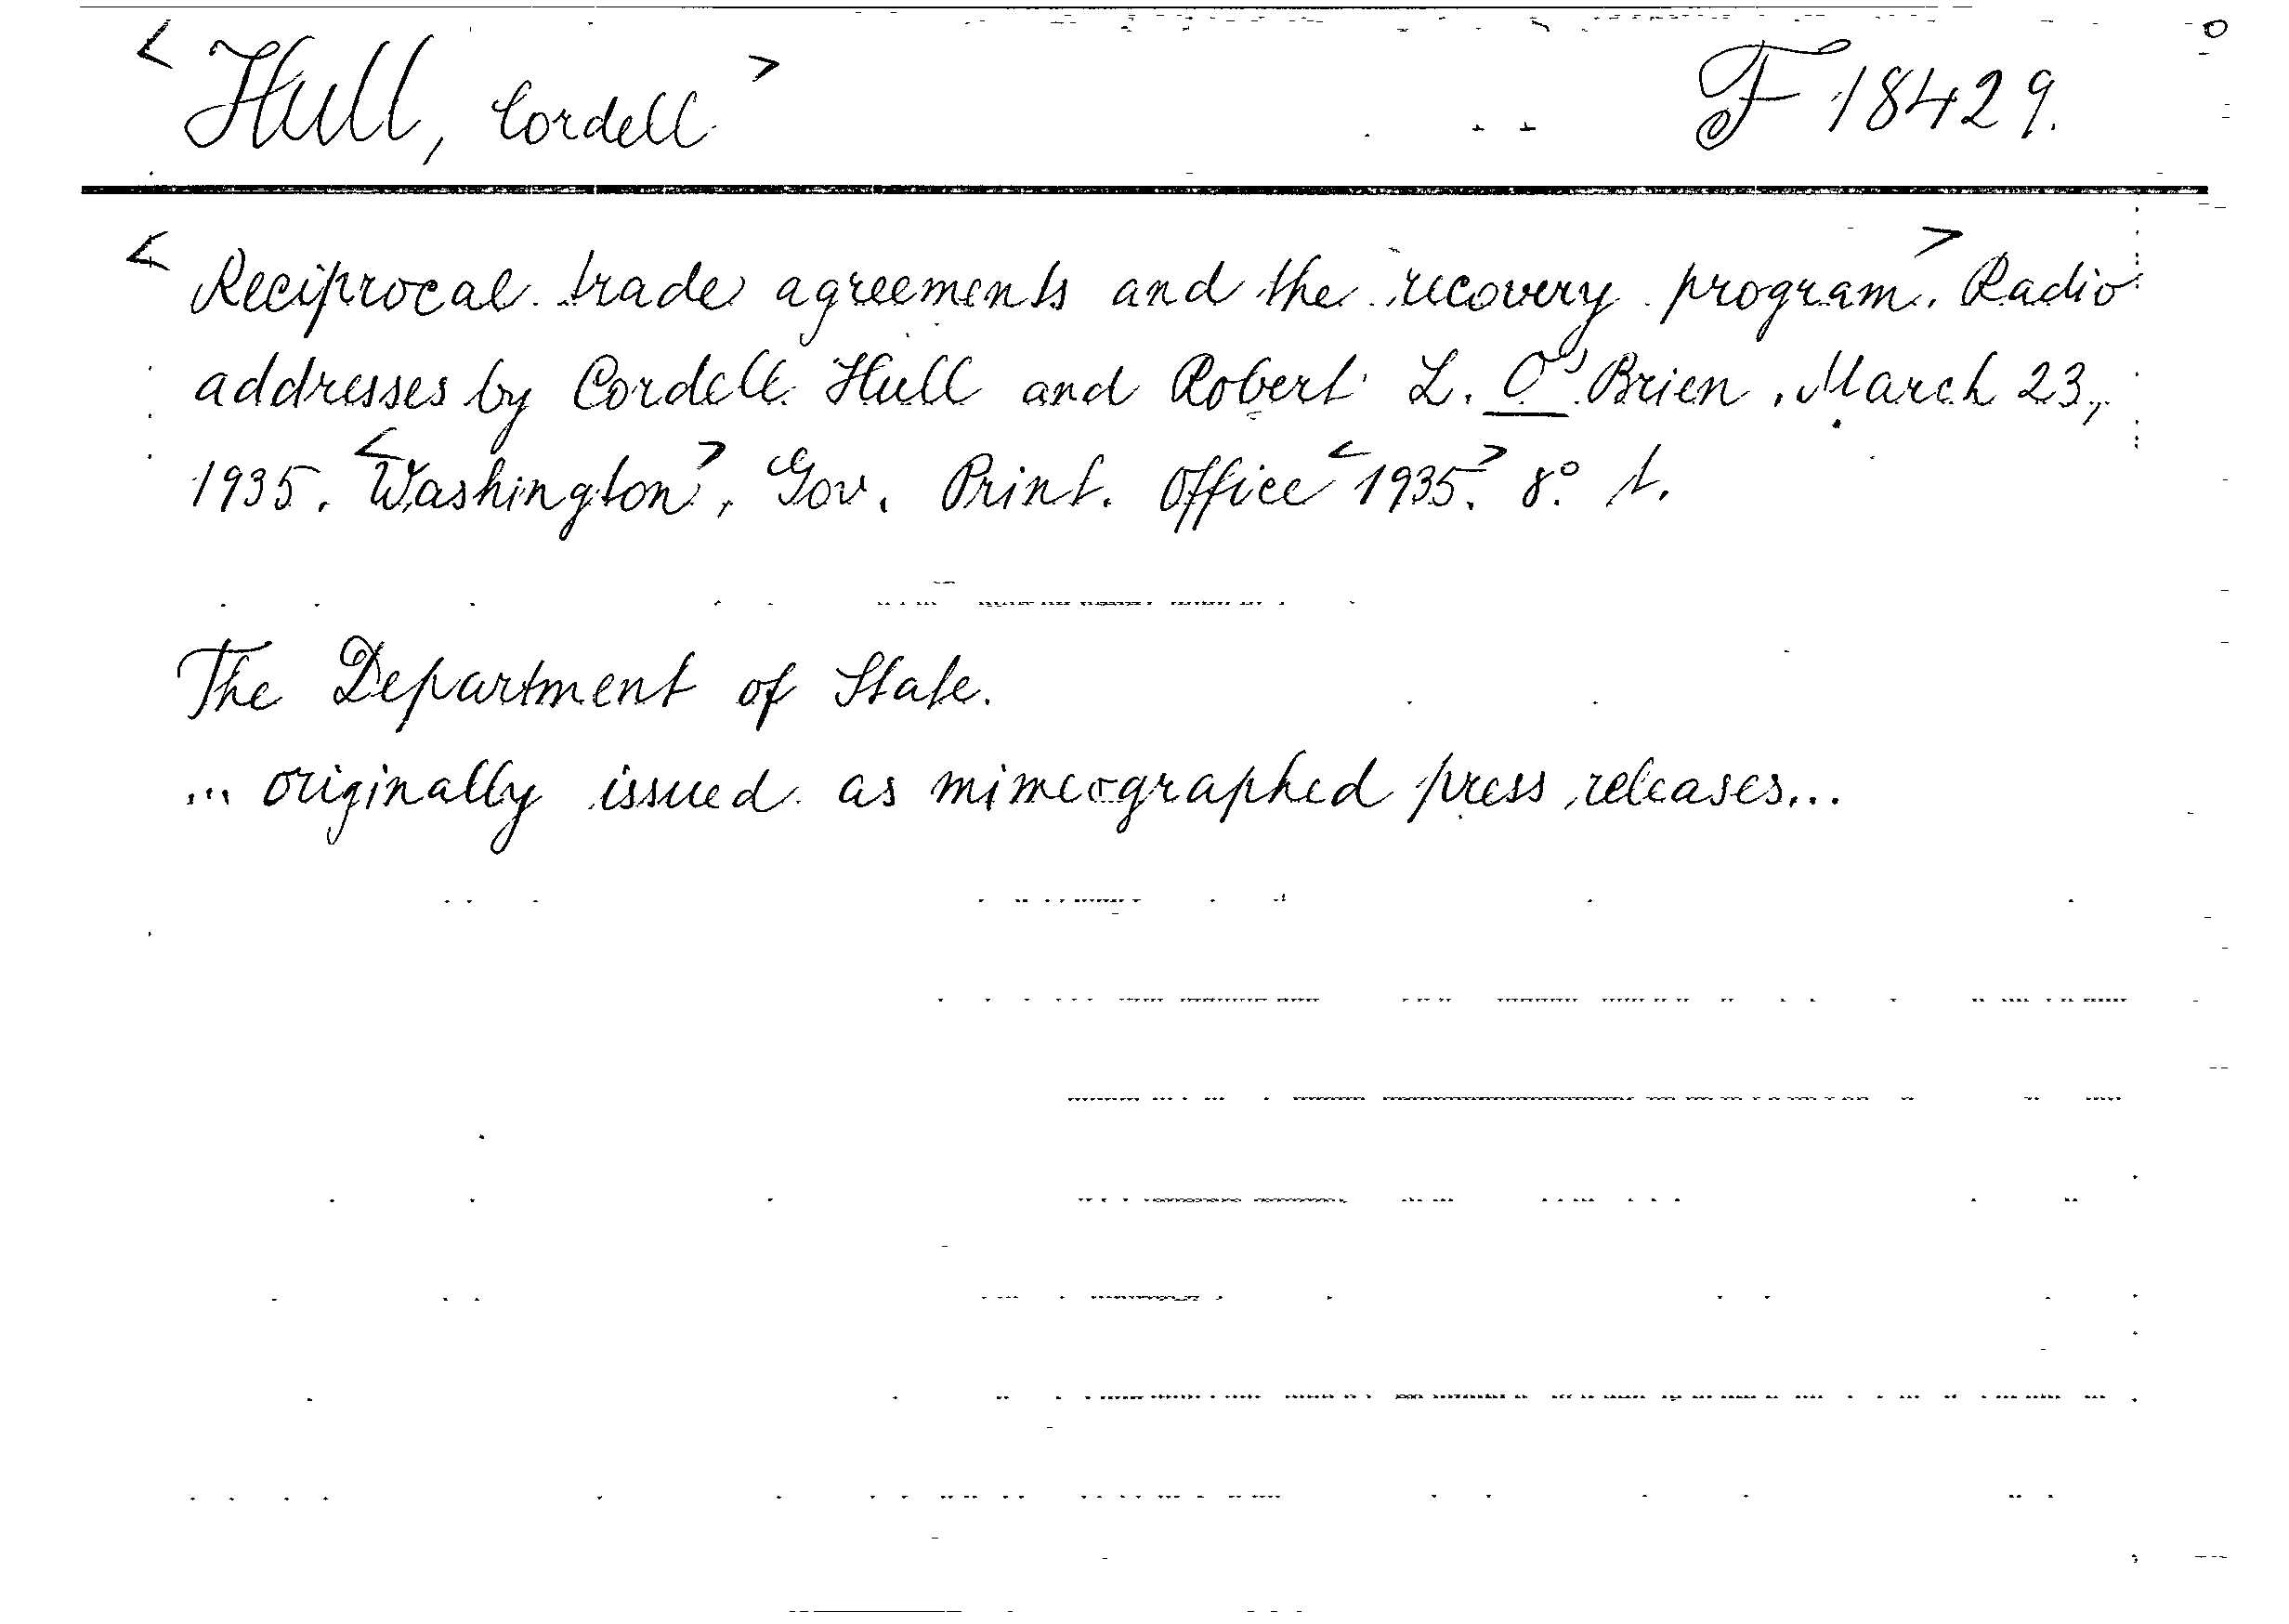 <Hull, Cordell> F 18429.
<Reciprocal trade agreements and the recovery program>. Radio
addresses by Cordell Hull and Robert L. O'Brien, March 23,
1935. <Washington>, Gov. Print. Office <1935>. 8° 1.
The Department of State.
... originally issued as mimeographed press releases...